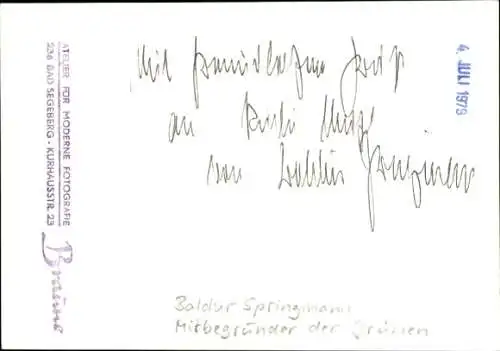 Mit freundlichem Gruß
an
von Baldur Springmann
4. JULI 1979
ATELIER FÜR MODERNE FOTOGRAFIE
236 BAD SEGEBERG · KURHAUSSTR. 23
Baldur Springmann
Mitbegründer der Grünen